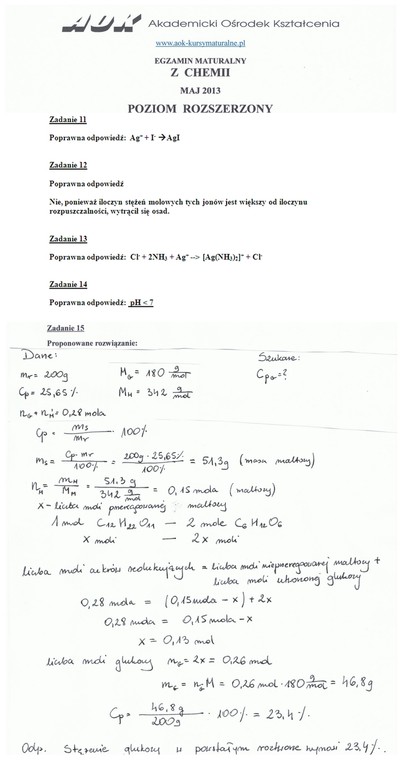 AOK Akademicki Ośrodek Kształcenia
www.aok-kursymaturalne.pl
EGZAMIN MATURALNY
Z CHEMII
MAJ 2013
POZIOM ROZSZERZONY
Zadanie 11
Poprawna odpowiedź: Ag⁺ + I⁻ → AgI
Zadanie 12
Poprawna odpowiedź
Nie, ponieważ iloczyn stężeń molowych tych jonów jest większy od iloczynu
rozpuszczalności, wytrącił się osad.
Zadanie 13
Poprawna odpowiedź: Cl⁻ + 2NH₃ + Ag⁺ --> [Ag(NH₃)₂]⁺ + Cl⁻
Zadanie 14
Poprawna odpowiedź: pH < 7
Zadanie 15
Proponowane rozwiązanie:
Dane: Szukane:
mr = 200g M_G = 180 g/mol Cp_G = ?
Cp = 25,65% M_M = 342 g/mol
n_G + n_M = 0,28 mola
Cp = ms/mr · 100%
ms = Cp · mr / 100% = 200g · 25,65% / 100% = 51,3g (masa maltozy)
n_M = m_M / M_M = 51,3 g / 342 g/mol = 0,15 mola (maltozy)
x - liczba moli maltozy
1 mol C₁₂H₂₂O₁₁ — 2 mole C₆H₁₂O₆
x moli — 2x moli
liczba moli cukrów redukujących = liczba moli maltozy +
liczba moli glukozy
0,28 mola = (0,15 mola - x) + 2x
0,28 mola = 0,15 mola - x
x = 0,13 mol
liczba moli glukozy n_G = 2x = 0,26 mol
m_G = n_G · M = 0,26 mol · 180 g/mol = 46,8g
Cp = 46,8g / 200g · 100% = 23,4%.
Odp. Stężenie glukozy w powstałym roztworze wynosi 23,4%.